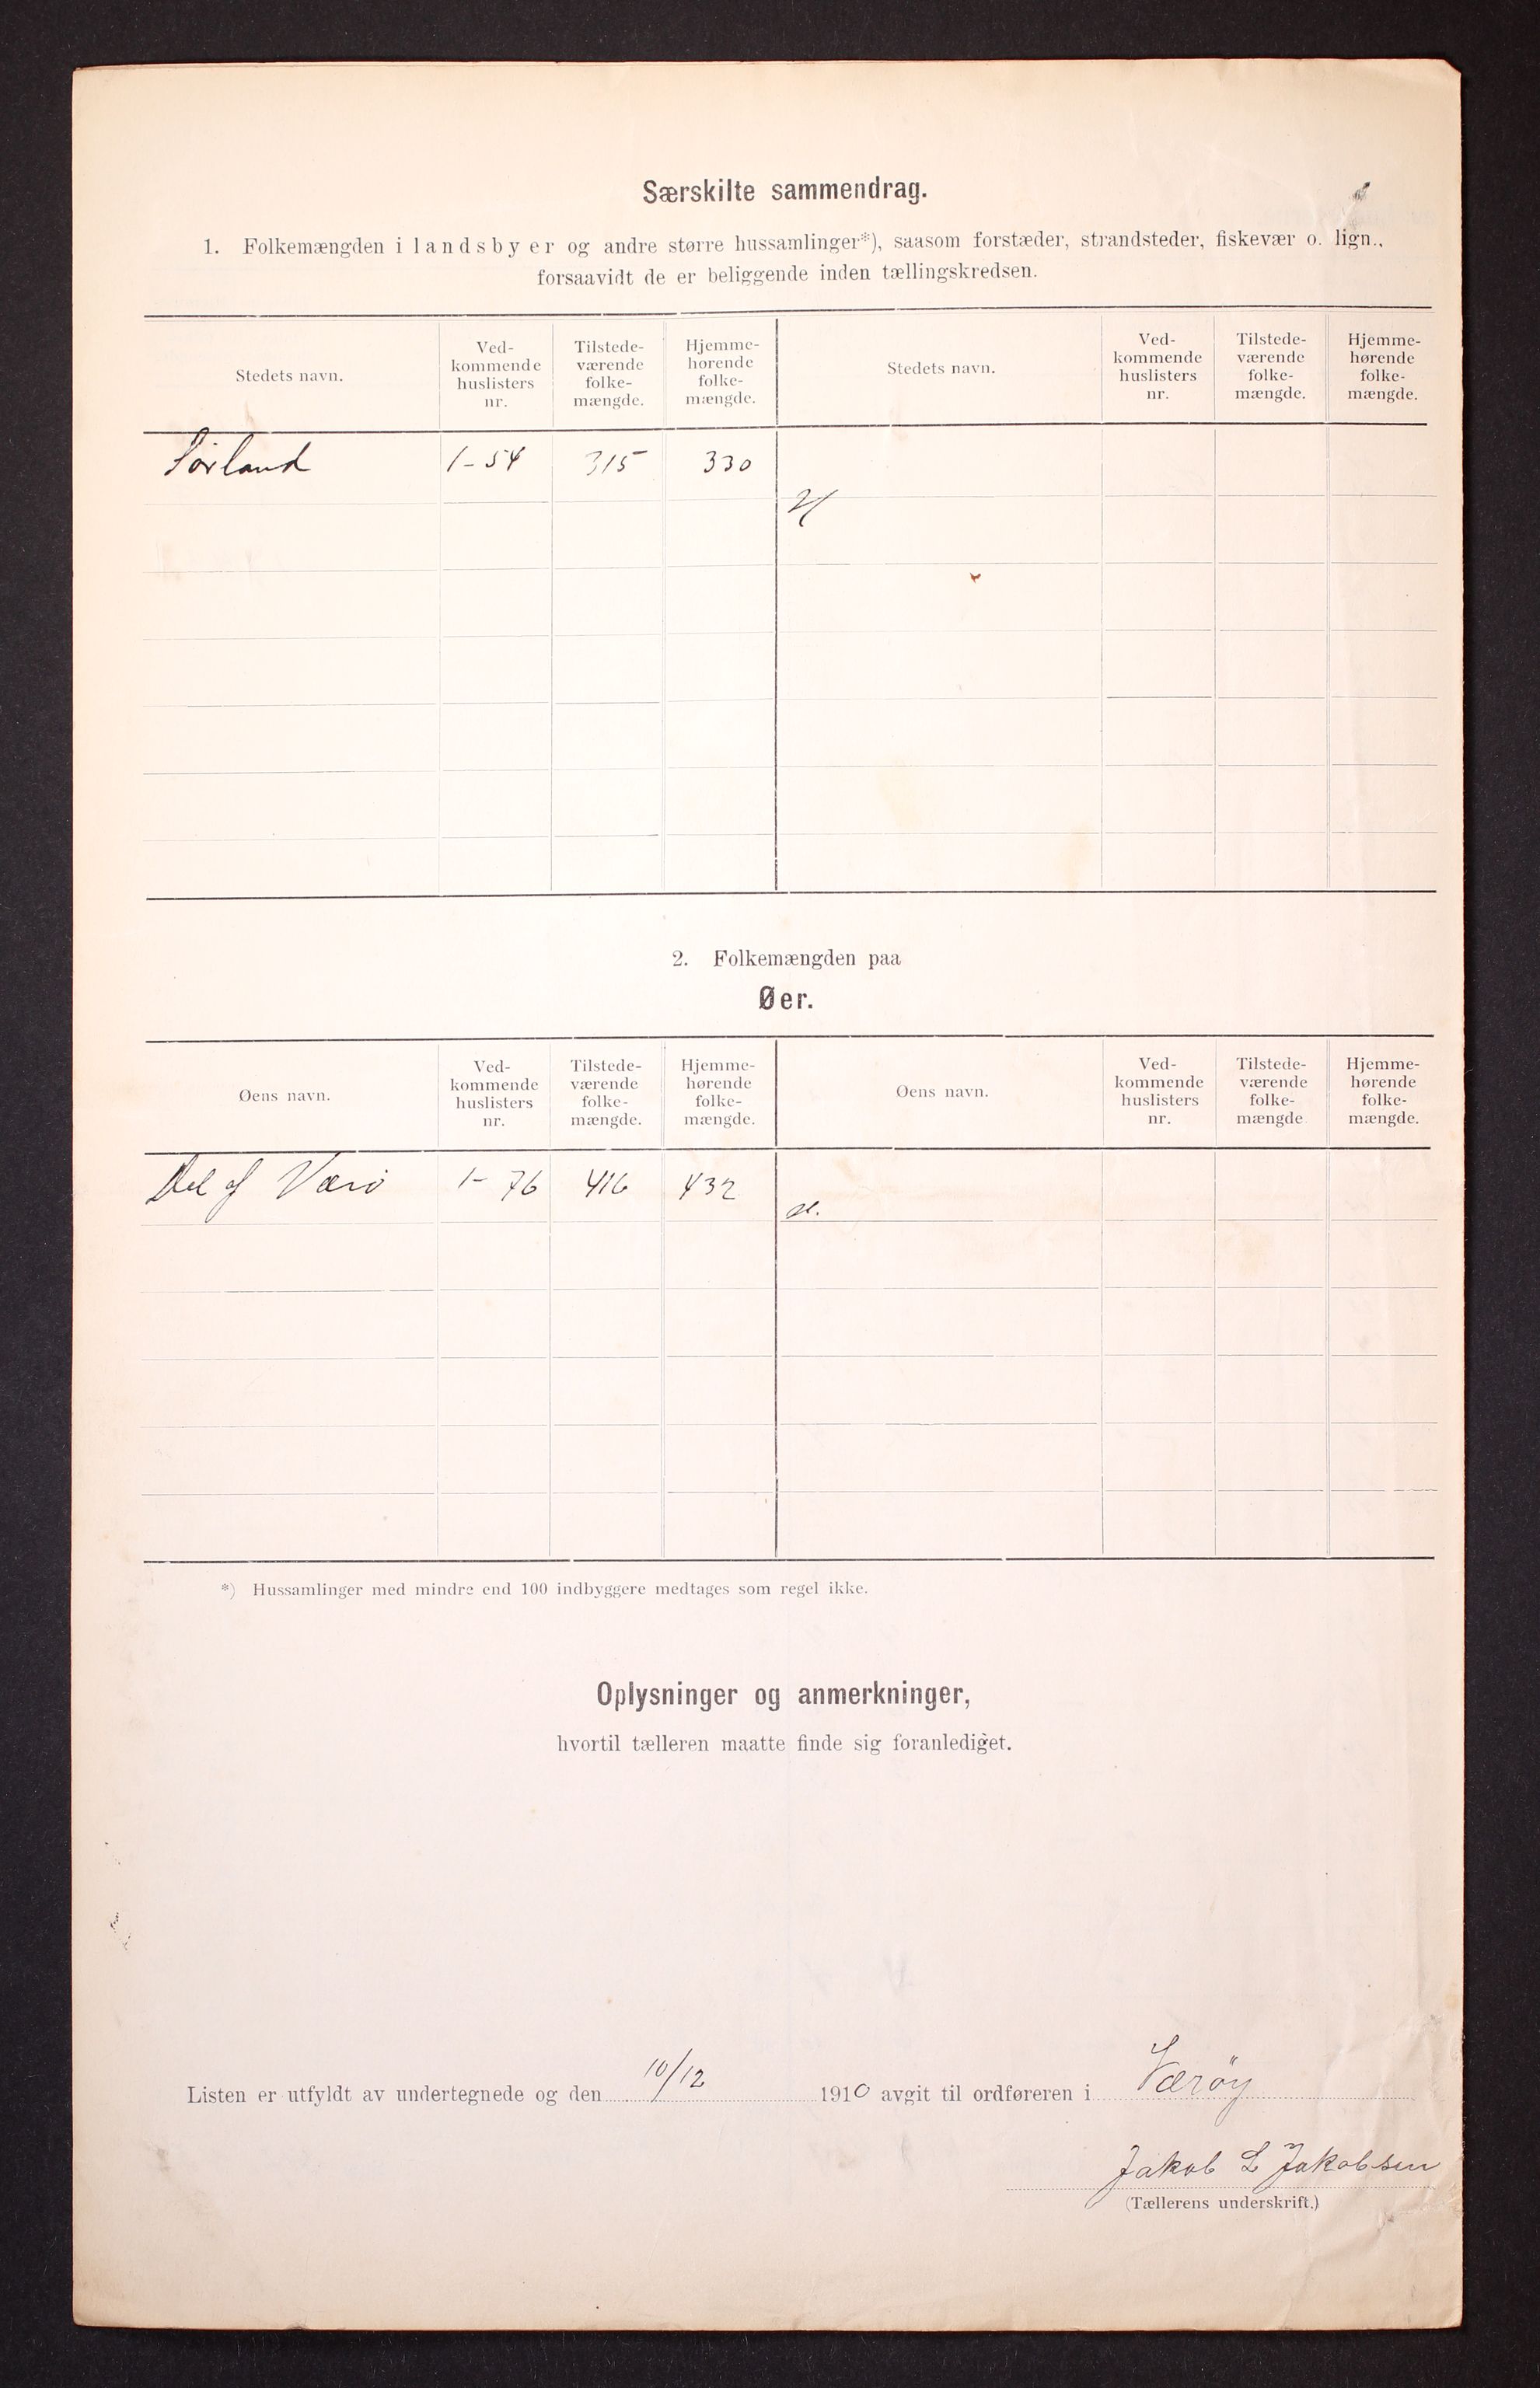 Særskilte sammendrag.
1. Folkemængden i landsbyer og andre større hussamlinger*), saasom forstæder, strandsteder, fiskevær o. lign.,
forsaavidt de er beliggende inden tællingskredsen.
Stedets navn. Ved-kommende huslisters nr. Tilstede-værende folke-mængde. Hjemme-hørende folke-mængde. Stedets navn. Ved-kommende huslisters nr. Tilstede-værende folke-mængde. Hjemme-hørende folke-mængde.
Sørland 1-54 315 330
2. Folkemængden paa
Øer.
Øens navn. Ved-kommende huslisters nr. Tilstede-værende folke-mængde. Hjemme-hørende folke-mængde. Øens navn. Ved-kommende huslisters nr. Tilstede-værende folke-mængde Hjemme-hørende folke-mængde.
Del af Værø 1-76 416 432
*) Hussamlinger med mindre end 100 indbyggere medtages som regel ikke.
Oplysninger og anmerkninger,
hvortil tælleren maatte finde sig foranlediget.
Listen er utfyldt av undertegnede og den 10/12 1910 avgit til ordføreren i Værøy
Jakob L Jakobsen
(Tællerens underskrift.)